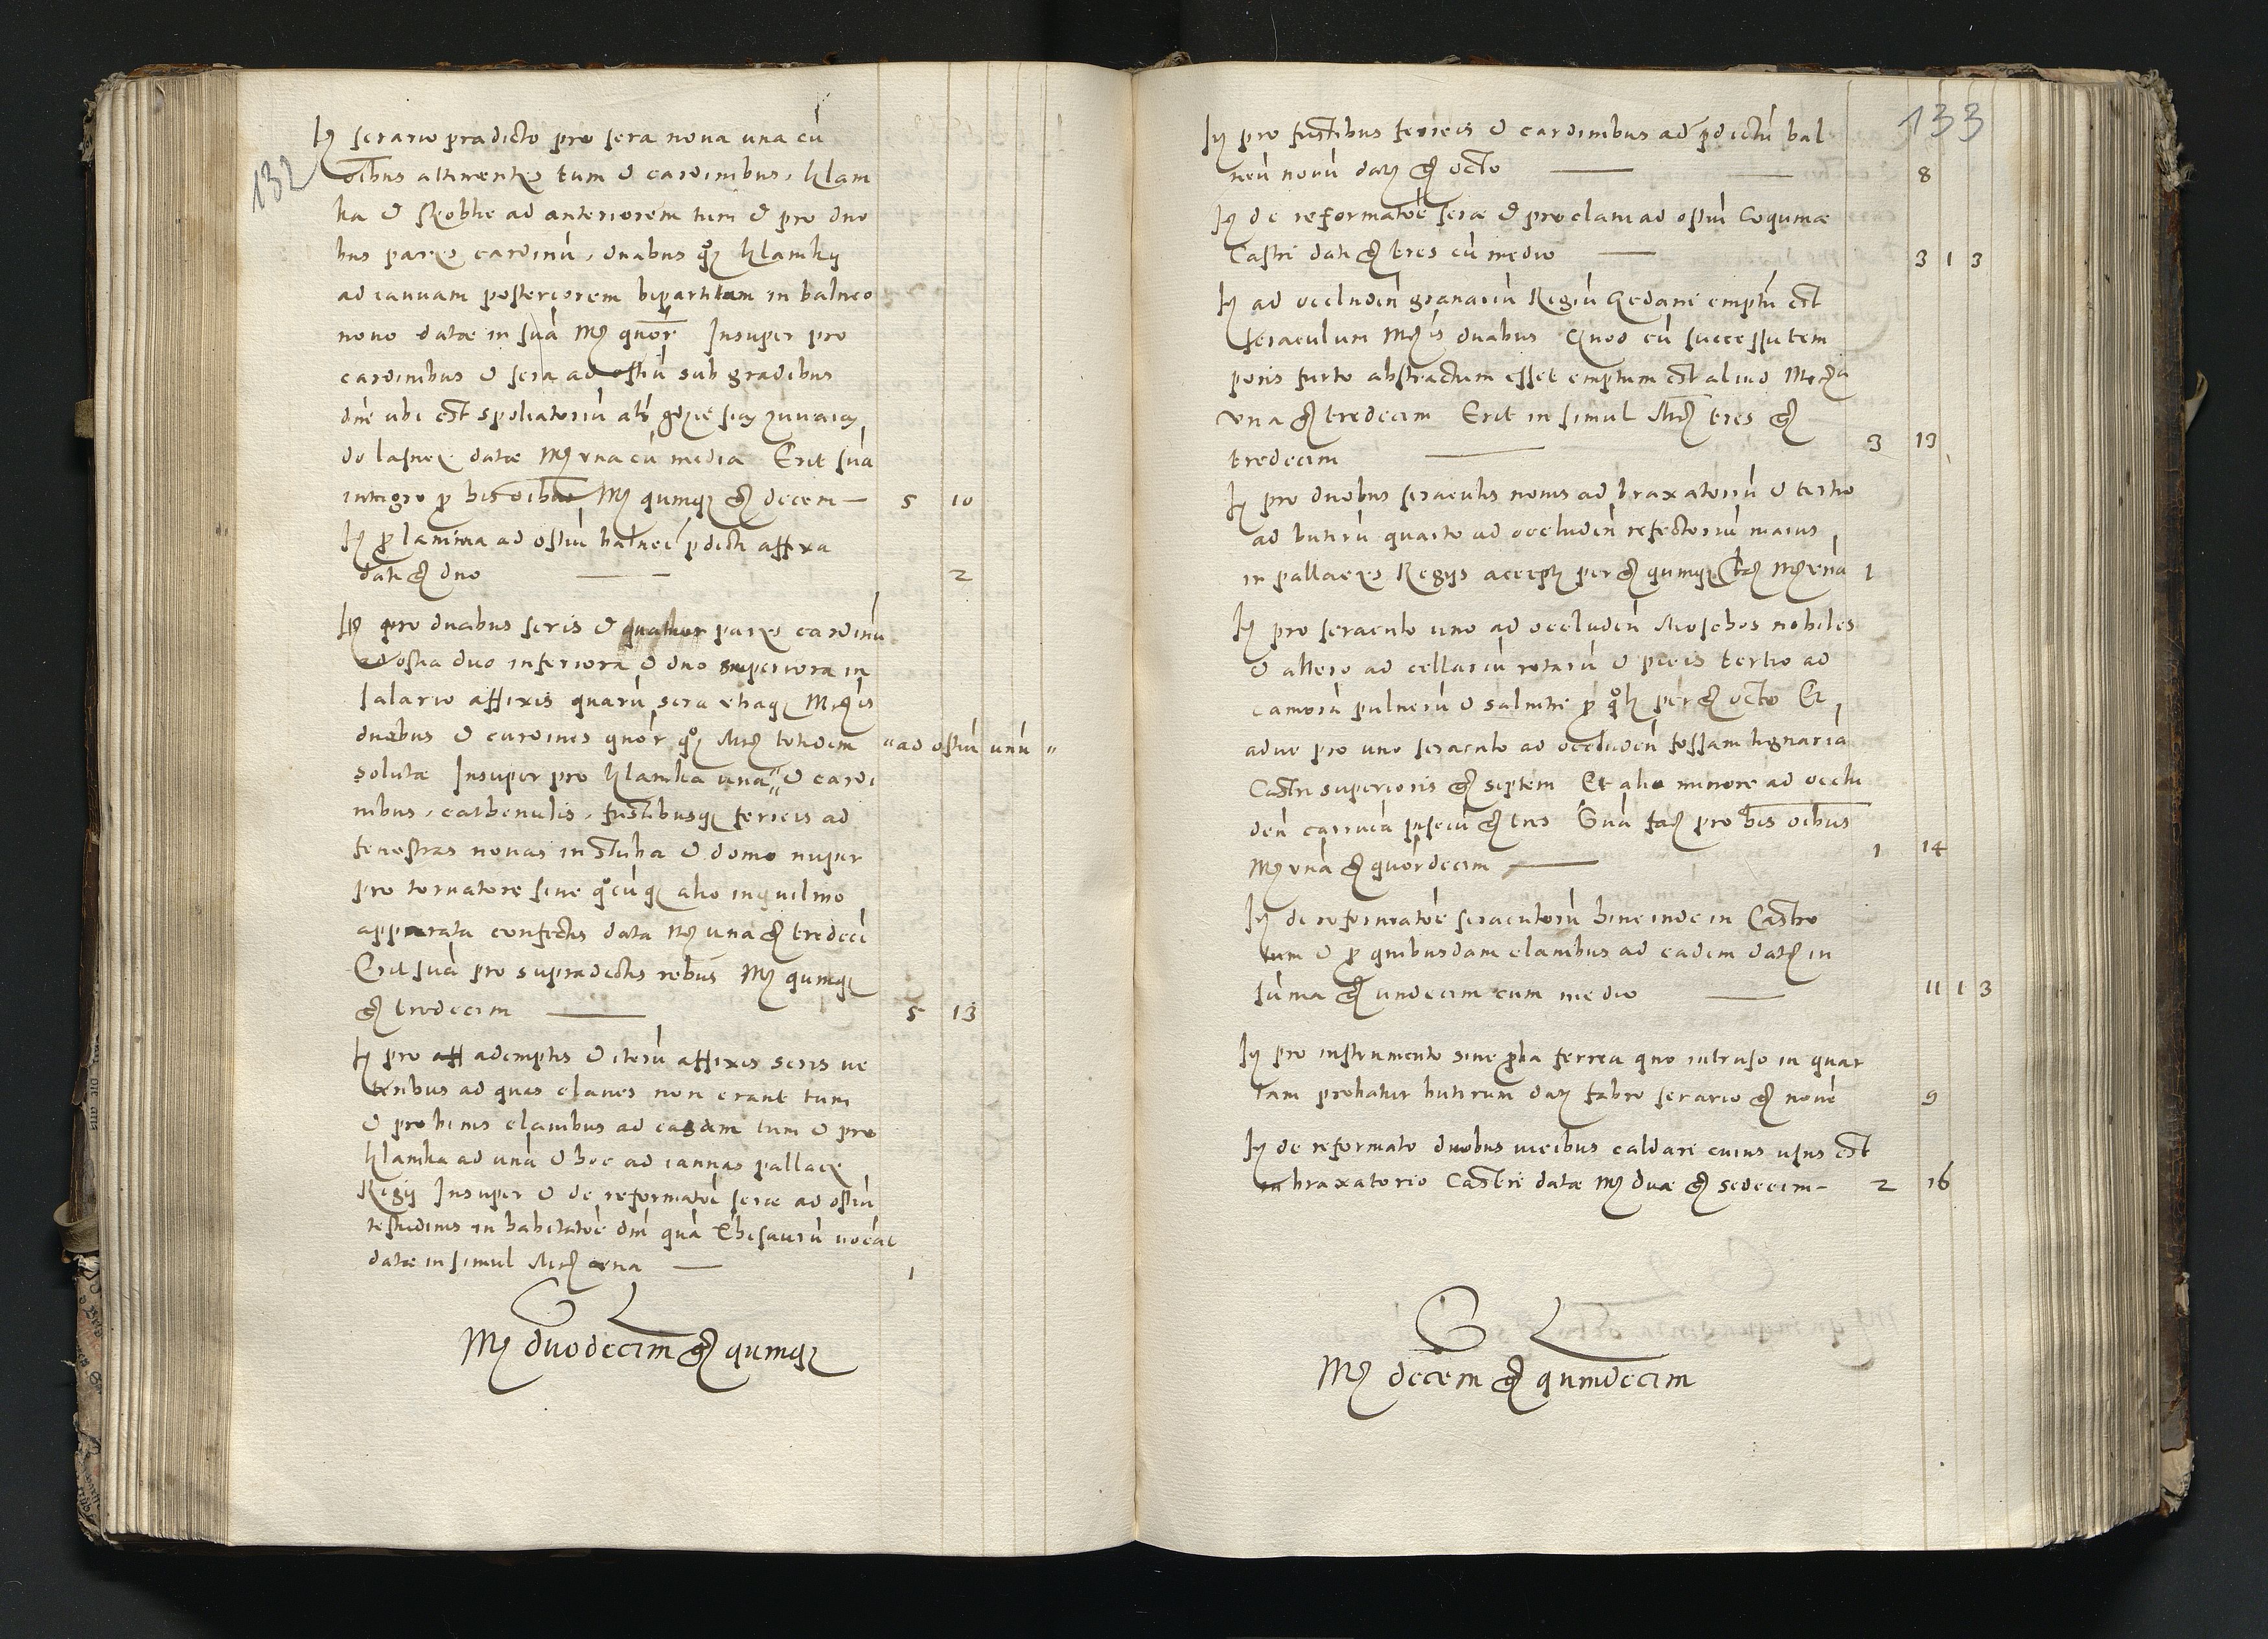 132
It serario predicto pro sera nova una cu
oibus attinentes tum & cardinibus, klam
ka & skoblie ad anteriorem tum & pro duo
bus pares cardinu, duabus qoz klamky
ad ianuam posteriorem bipartitam in balneo
novo datae in sua Mrc quor Insuper pro
cardinibus & sera ad ostiu sub gradibus
dne ubi est spoliatoriu als gdzie sią zuvaią
do lasnie datae Mrc una cu media Erit sua
integro p his oibus Mrc quinqz gr decem — 5 10
It p lamina ad ostiu balnei pdicti affixa
dati gr duo — 2
It pro duabus seris & quatuor pares cardinu
ad ostia duo inferiora & duo superiora in
salario affixis quaru sera utraqz Mrcis
duabus & cardines quor qoz Mrc totidem "ad ostiu unu"
solutae Insuper pro klamka una" & cardi
nibus, cathenulis, fustibusqz ferreis ad
fenestras novas in stuba & domo nuper
pro tornatore sive qocuqz alio inquilino
apparata confectis data Mrc una gr tredeci
Erit sua pro supradictis rebus Mrc quinqz
gr tredecim — 5 13
It pro aff ademptis & iteru affixis seris ve
teribus ad quas claves non erant tum
& pro binis clavibus ad easdem tum & pro
klamka ad una & hoc ad iannas pallacz
Regij Insuper & de reformatoe serae ad ostiu
testudinis in habitatoe dni qua Thesauru vocat
datae insimul Mrc una — 1
Mrc duodecim gr quinqz
133
It pro fustibus ferreis & cardinibus ad pdictu bal
neu novu datz gr octo — 8
It de reformatoe serae & pro clavi ad ostiu Coquinae
Castri dati gr tres cu medio — 3 1 3
It ad occluden granariu Regiu Gedani emptu est
seraculum Mrcis duabus Quod cu successu tem
poris furto abstractum esset emptum est aliud Mrca
una gr tredecim Erit in simul Mrc tres gr
tredecim — 3 13
It pro duobus seraculis novis ad braxatoriu & tertio
ad butiru quarto ad occluden refectoriu maius
in pallaczo Regijs acceptz per gr quinqz Mrc una 1
It pro seraculo uno ad occluden Moschos nobiles
& altero ad cellariu rotaru & picis tertio ad
camora pulveru & salnitre p per gr octo Et
adue pro uno seraculo ad occluden fossam lignaria
Castri superioris gr septem Et alio minore ad occlu
den carnea pisciu gr tres Sua fac pro his oibus
Mrc una gr quordecim — 1 14
It de reformatoe seraculoru hincinde in Castro
tum & p quibusdam clavibus ad eadem datz in
suma gr undecim cum medio — 11 1 3
It pro instrumento sive pba ferrea quo intruso in quar
tam probatur butirum datz fabro serario gr nove 9
It de reformato duobus vicibus caldare cuius usus est
in braxatorio Castri datae Mrc duae gr sedecim — 2 16
Mrc decem gr quindecim